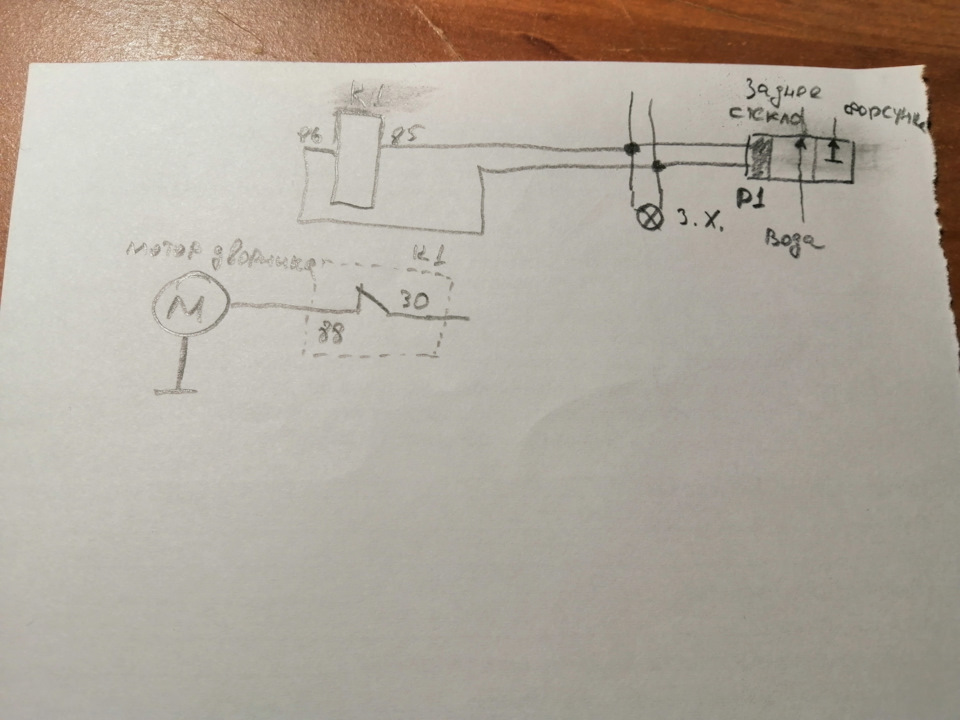 К1
86
85
Заднее
стекло
форсунка
P1
З.Х.
Вода
мотор дворника
К1
М
30
88